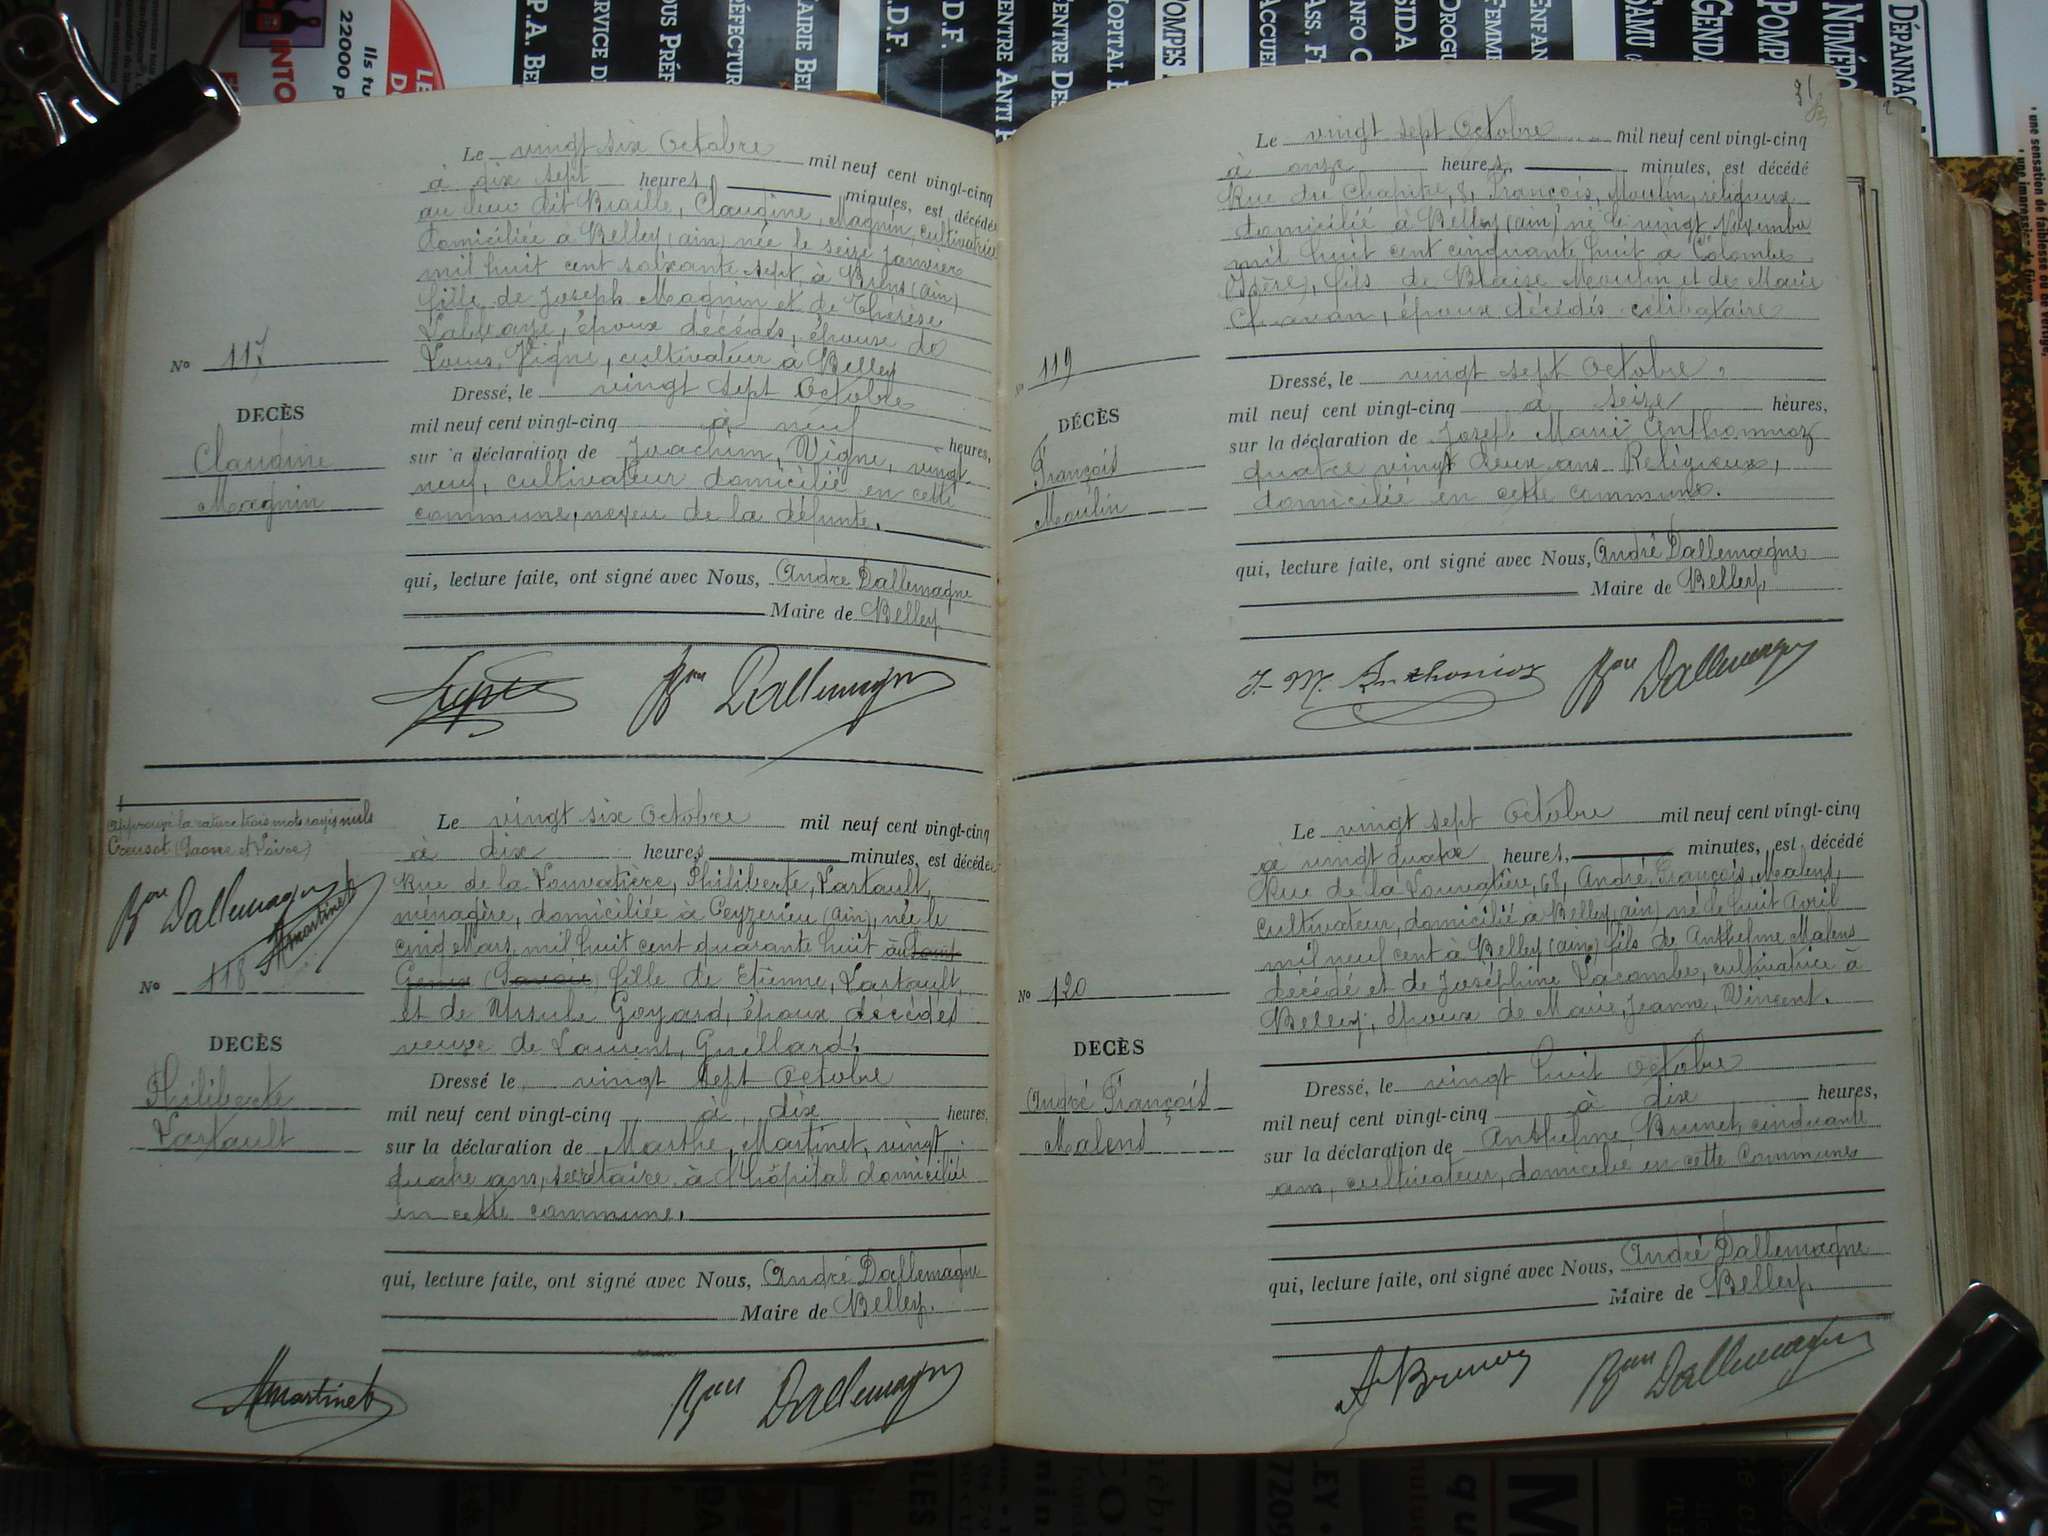 Le vingt six Octobre mil neuf cent vingt-cinq
à dix sept heures minutes, est décédée
au lieu dit Braille, Claudine, Magnin, cultivatrice
domiciliée à Belley (ain) née le seize Janvier
mil huit cent soixante sept, à Brens (ain)
fille de Joseph Magnin et de Thérèse
époux décédés, épouse de
Louis, Vigne, cultivateur à Belley
No 117
DECÈS
Claudine
Magnin
Dressé, le vingt sept Octobre
mil neuf cent vingt-cinq à neuf heures,
sur a déclaration de Joachim, Vigne, vingt
neuf, cultivateur domicilié en cette
commune, neveu de la défunte.
qui, lecture faite, ont signé avec Nous, André Dallemagne
Maire de Belley
Bon Dallemagne
approuvé la rature trois mots rayés nuls
Creusot (Saone et Loire)
Bon Dallemagne
Mmartinet
Le vingt six Octobre mil neuf cent vingt-cinq
à dix heures minutes, est décédée
Rue de la Louvatière, Philiberte, Lartault,
ménagère, domiciliée à Ceyzerieu (ain), née le
cinq Mars, mil huit cent quarante huit au
(Savoie) fille de Etienne, Lartault,
et de Ursule Goyard, époux décédés
veuve de Laurent, Guillard.
No 118
DECÈS
Philiberte
Lartault
Dressé le vingt sept Octobre
mil neuf cent vingt-cinq à dix heures,
sur la déclaration de Marthe, Martinet, vingt
quatre ans, secrétaire à l'hôpital domiciliée
en cette commune.
qui, lecture faite, ont signé avec Nous, André Dallemagne
Maire de Belley.
Mmartinet Bon Dallemagne
31
Le vingt sept Octobre mil neuf cent vingt-cinq
à onze heures, minutes, est décédé
Rue du Chapitre, 8, François, Moulin, religieux
domicilié à Belley (ain) né le vingt Novembre
mil huit cent cinquante huit à Colombe
(Isère), fils de Blaise Moulin et de Marie
époux décédés célibataire
No 119
DÉCÈS
François
Moulin
Dressé, le vingt sept Octobre,
mil neuf cent vingt-cinq à seize heures,
sur la déclaration de Joseph Marie Anthonioz
quatre vingt deux ans Religieux,
domicilié en cette commune.
qui, lecture faite, ont signé avec Nous, André Dallemagne
Maire de Belley
J. M. Anthonioz Bon Dallemagne
Le vingt sept Octobre mil neuf cent vingt-cinq
à vingt quatre heures, minutes, est décédé
Rue de la Louvatière, 68, André, François, Malens,
cultivateur, domicilié à Belley (ain) né le huit Avril
mil neuf cent à Belley (ain) fils de Anthelme, Malens
décédé et de Joséphine Lacombe, cultivatrice à
Belley, époux de Marie, Jeanne, Vincent.
No 120
DECÈS
André François
Malens
Dressé, le vingt huit Octobre
mil neuf cent vingt-cinq à dix heures,
sur la déclaration de Anthelme, Brunet, cinquante
ans, cultivateur, domicilié en cette Commune
qui, lecture faite, ont signé avec Nous, André Dallemagne
Maire de Belley.
A Brunet Bon Dallemagne